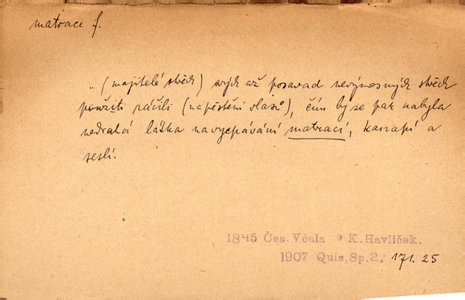 matrace f.
„(majitelé střech) svých až posavad nevýnosných střech
použiti ráčili (na pěstění vlasů), čím by se pak nabyla
nedrahá látka na vycpávání matrací, kanapí a
seslí.
1845 Čes. Včela * K. Havlíček.
1907 Quis, Sp. 2, 171. 25